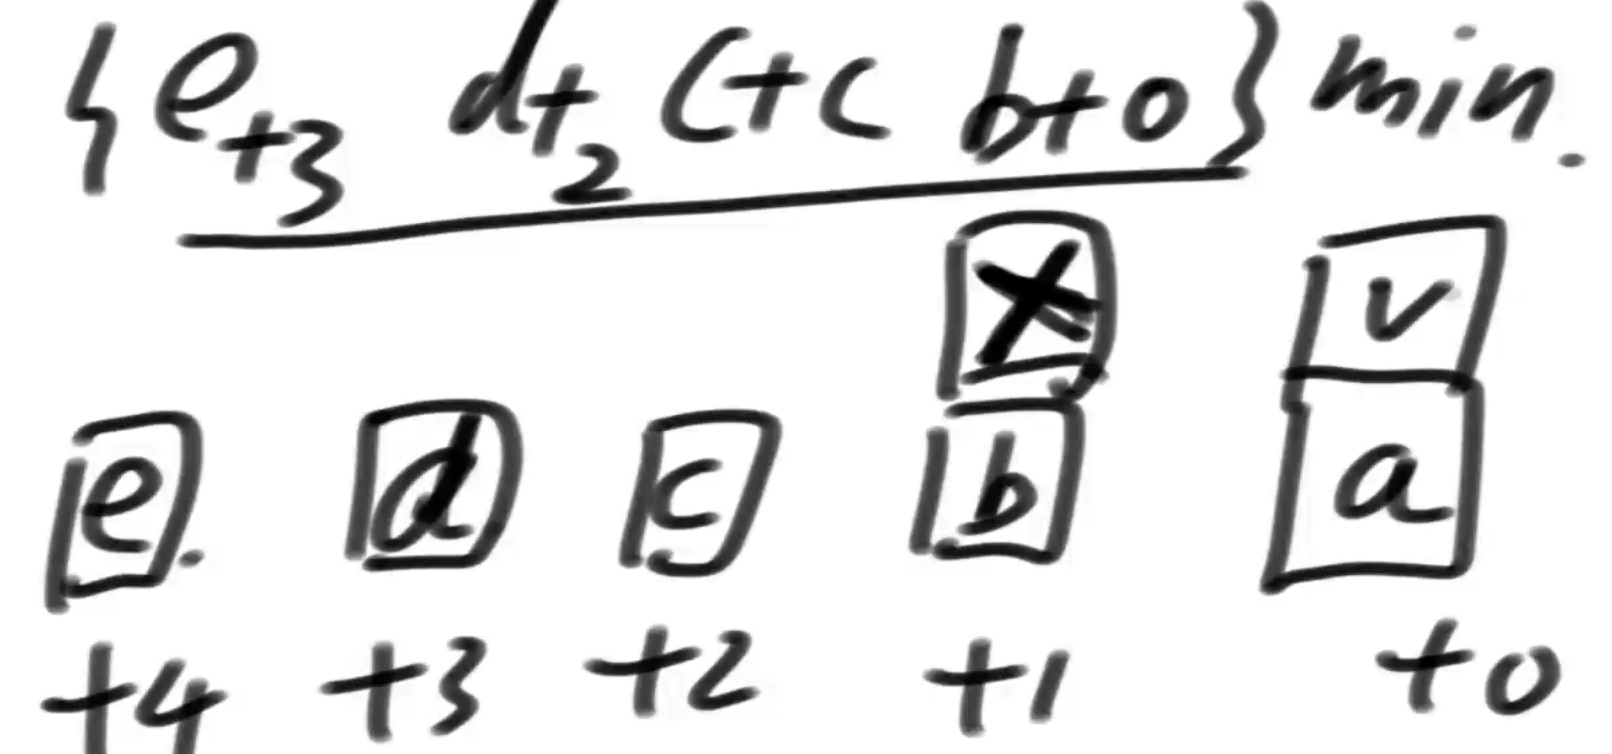 {e+3 d+2 c+c b+0} min.
x v
e. d c b a
+4 +3 +2 +1 +0